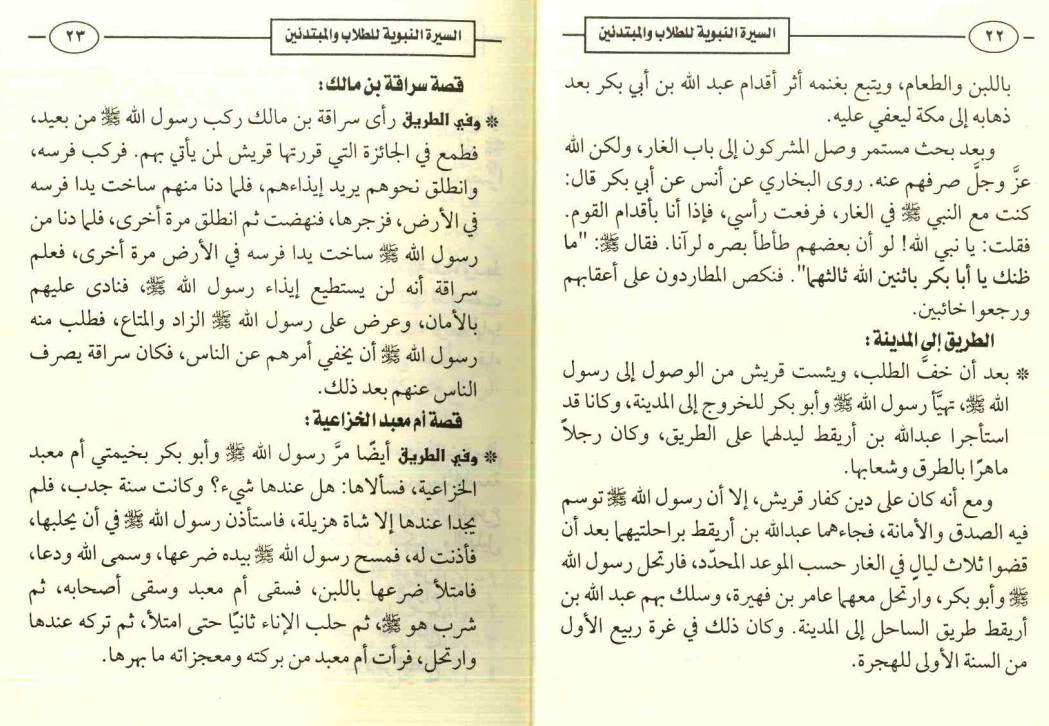 ٢٢
السيرة النبوية للطلاب والمبتدئين
باللبن والطعام، ويتبع بغنمه أثر أقدام عبد الله بن أبي بكر بعد
ذهابه إلى مكة ليعفي عليه.
وبعد بحث مستمر وصل المشركون إلى باب الغار، ولكن الله
عزَّ وجلَّ صرفهم عنه. روى البخاري عن أنس عن أبي بكر قال:
كنت مع النبي ﷺ في الغار، فرفعت رأسي، فإذا أنا بأقدام القوم.
فقلت: يا نبي الله! لو أن بعضهم طأطأ بصره لرآنا. فقال ﷺ: "ما
ظنك يا أبا بكر باثنين الله ثالثهما". فنكص المطاردون على أعقابهم
ورجعوا خائبين.
الطريق إلى المدينة:
* بعد أن خفَّ الطلب، ويئست قريش من الوصول إلى رسول
الله ﷺ، تهيَّأ رسول الله ﷺ وأبو بكر للخروج إلى المدينة، وكانا قد
استأجرا عبدالله بن أريقط ليدلهما على الطريق، وكان رجلاً
ماهرًا بالطرق وشعابها.
ومع أنه كان على دين كفار قريش، إلا أن رسول الله ﷺ توسم
فيه الصدق والأمانة، فجاءهما عبدالله بن أريقط براحلتيهما بعد أن
قضوا ثلاث ليالٍ في الغار حسب الموعد المحدّد، فارتحل رسول الله
ﷺ وأبو بكر، وارتحل معهما عامر بن فهيرة، وسلك بهم عبد الله بن
أريقط طريق الساحل إلى المدينة. وكان ذلك في غرة ربيع الأول
من السنة الأولى للهجرة.
السيرة النبوية للطلاب والمبتدئين
٢٣
قصة سراقة بن مالك:
* وفي الطريق رأى سراقة بن مالك ركب رسول الله ﷺ من بعيد،
فطمع في الجائزة التي قررتها قريش لمن يأتي بهم. فركب فرسه،
وانطلق نحوهم يريد إيذاءهم، فلما دنا منهم ساخت يدا فرسه
في الأرض، فزجرها، فنهضت ثم انطلق مرة أخرى، فلما دنا من
رسول الله ﷺ ساخت يدا فرسه في الأرض مرة أخرى، فعلم
سراقة أنه لن يستطيع إيذاء رسول الله ﷺ، فنادى عليهم
بالأمان، وعرض على رسول الله ﷺ الزاد والمتاع، فطلب منه
رسول الله ﷺ أن يخفي أمرهم عن الناس، فكان سراقة يصرف
الناس عنهم بعد ذلك.
قصة أم معبد الخزاعية:
* وفي الطريق أيضًا مرَّ رسول الله ﷺ وأبو بكر بخيمتي أم معبد
الخزاعية، فسألاها: هل عندها شيء؟ وكانت سنة جدب، فلم
يجدا عندها إلا شاة هزيلة، فاستأذن رسول الله ﷺ في أن يحلبها،
فأذنت له، فمسح رسول الله ﷺ بيده ضرعها، وسمى الله ودعا،
فامتلأ ضرعها باللبن، فسقى أم معبد وسقى أصحابه، ثم
شرب هو ﷺ، ثم حلب الإناء ثانيًا حتى امتلأ، ثم تركه عندها
وارتحل، فرأت أم معبد من بركته ومعجزاته ما بهرها.